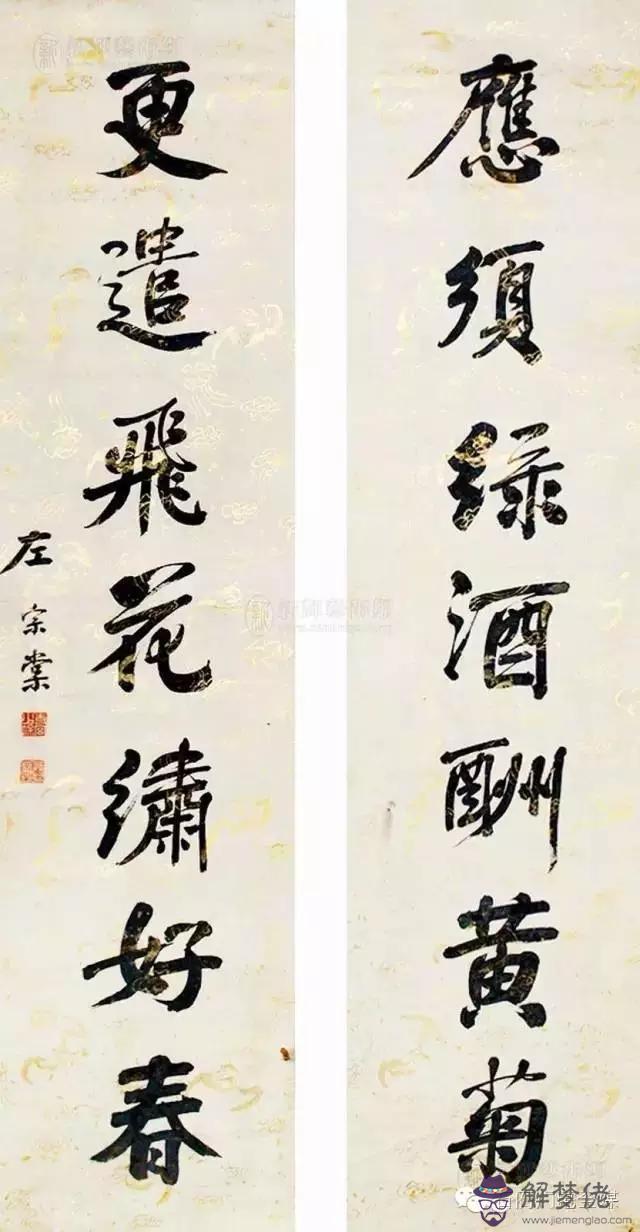 應須綠酒酬黄菊
更遣飛花繡好春
左宗棠
解梦佬
www.jiemenglao.com